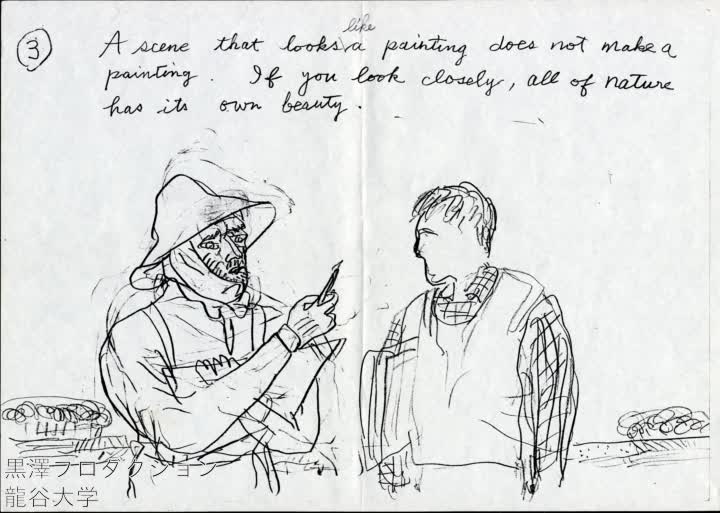 3
A scene that looks like a painting does not make a
painting. If you look closely, all of nature
has its own beauty.
黒澤プロダクション
龍谷大学